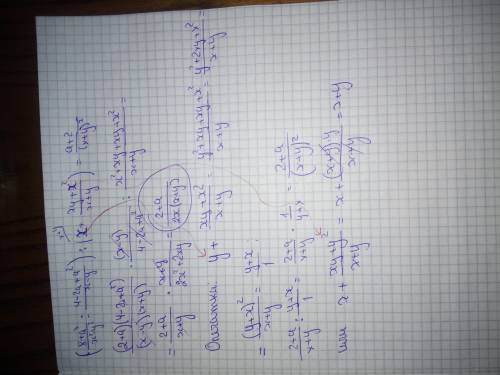 (8+a³/x²-y² : 4-2a+a²/x-y) : (x + xy+x²/x+y) = a+2/(x+y)²
(2+a)(4-2a+a²)/(x-y)(x+y) · (x-y)/4-2a+a² : x²+xy+xy+x²/x+y =
= 2+a/x+y · x+y/2x²+2xy = 2+a/2x(x+y)
Опечатка: y + xy+x²/x+y = y²+xy+xy+x²/x+y = y²+2xy+x²/x+y =
= (y+x)²/x+y = y+x/1
2+a/x+y : y+x/1 = 2+a/x+y · 1/y+x = 2+a/(x+y)²
или x + xy+y²/x+y = x + (x+y)y/x+y = x+y